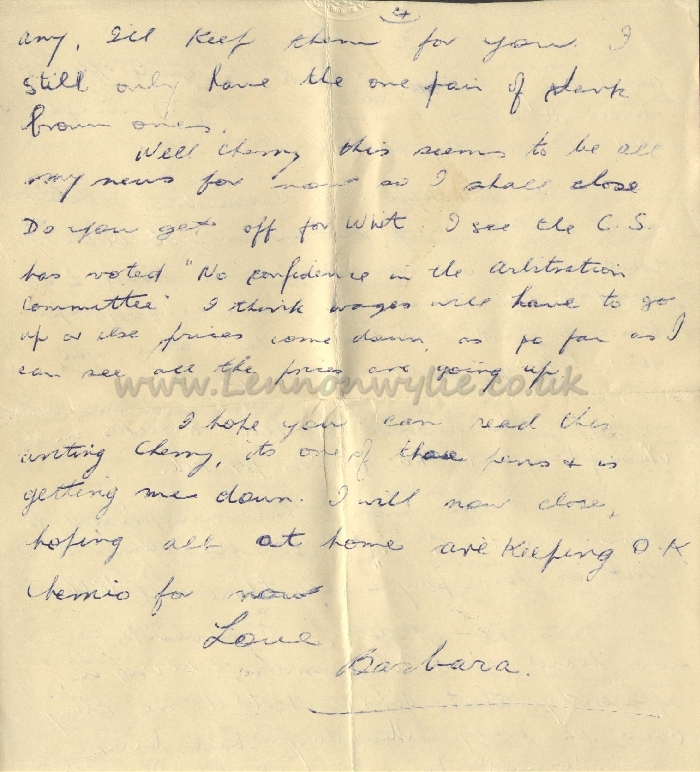 4
any, I'll Keep them for you. I
still only have the one pair of dark
brown ones.
Well Cherry this seems to be all
my news for now so I shall close
Do you get off for Whit. I see the C.S.
has voted "No confidence in the Arbitration
Committee" I think wages will have to go
up or else prices come down, as so far as I
can see all the prices are going up
www.Lennonwylie.co.uk
I hope you can read this
writing Cherry, its one of those pens & is
getting me down. I will now close,
hoping all at home are Keeping O.K
Cheerio for now
Love
Barbara.